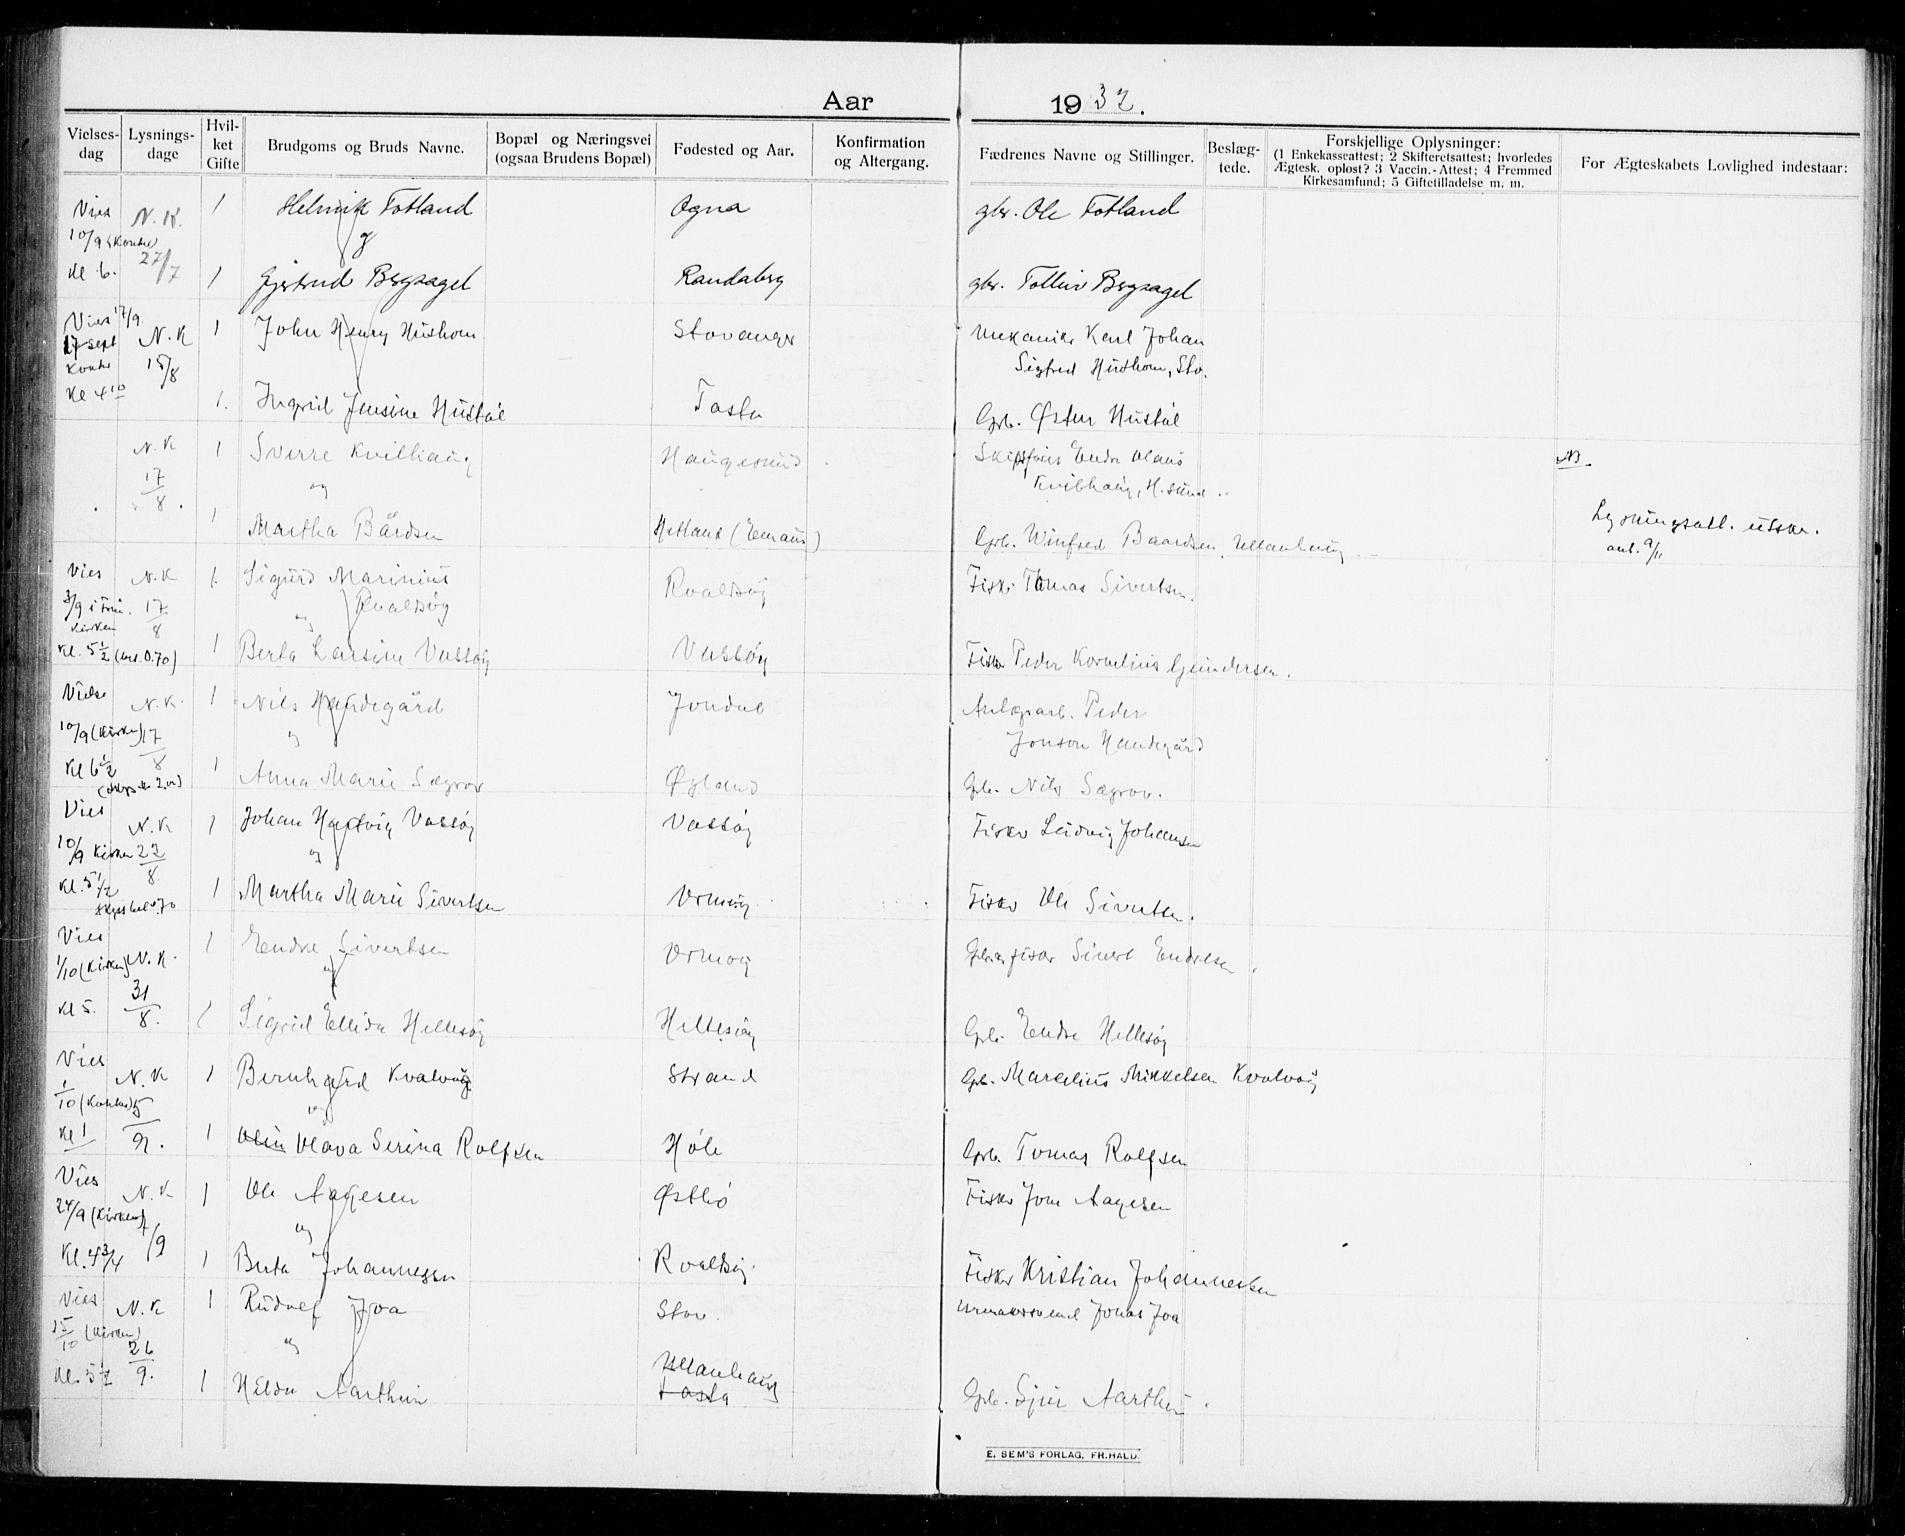 Aar 1932.
Vielses-dag
Lysnings-dage
Hvil-ket Gifte
Brudgoms og Bruds Navne.
Bopæl og Næringsvei (ogsaa Brudens Bopæl)
Fødested og Aar.
Konfirmation og Altergang.
Fædrenes Navne og Stillinger.
Beslæg-tede.
Forskjellige Oplysninger:
(1 Enkekasseattest; 2 Skifteretsattest; hvorledes
Ægtesk. opløst? 3 Vaccin.-Attest; 4 Fremmed
Kirkesamfund; 5 Giftetilladelse m. m.
For Ægteskabets Lovlighed indestaar:
Vies N. K. 1 Helmik Totland Ogna gbr. Ole Totland
10/9 27/7 og
Kl 6. 1 Gjertrud Bergsagel Randaberg gbr. Tolleiv Bergsagel
Vies 17/9. N. K 1 John Henry Husthom Stavanger Mekaniker Karl Johan
17 sept
15/8 Sigfred Husthom, Stv.
Kl 4 10
1. Ingrid Jensine Hustøl Tasta Grb. Østen Hustøl
N. K 1 Sverre Kvilhaug Haugesund Endre Olaus NB.
17/8 og Kvilhaug, H.sund
1 Martha Bårdsen Hetland (Emaus) Grb. Winfred Baardsen, Ullanhaug. Lysningsatt. utskr.
9/11
Vies N. K 1. Sigurd Marinius Roaldsøy Fisker Tomas Sivertsen.
3/9 i Frue Kirken 17/8 Roaldsøy
og
Kl. 5½ 1 Berta Lausine Vassøy Vassøy Fisker Peder Kornelius Gundersen.
Vielse N. K. 1 Nils Handegård Jondal Anlægsarb. Peder
10/9 (Kirken) 17/8 og Jonson Handegård
Kl 6½ 1 Anna Marie Sægrov Gbr. Nils Sægrov.
Vies N. K 1 Johan Hartvig Vassøy Vassøy Fisker Ludvig Johansen
10/9 Kirken 22/8 og
Kl. 5½ 1 Martha Marie Sivertsen Ormøy Fisker Ole Sivertsen.
Vies 1 Endre Sivertsen Ormøy Gbr. og fisker Sivert Endresen.
1/10 (Kirken) N. K. og
Kl 5. 31/8. 1 Sigrid Ellida Hellesøy Hellesøy Gbr. Endre Hellesøy
Vies N. K 1 Bernhard Kvalvåg Strand Gbr. Marselius Mikkelsen Kvalvåg
1/10 5/9. og
Kl 1 1 Olin Olava Serina Rolfsen Høle Gbr. Tomas Rolfsen
Vies N. K 1 Ole Aagesen Østbø Fisker Jon Aagesen
24/9 (Kirken) 7/9 og
Kl. 4 3/4 1 Berta Johannessen Roaldsøy Fisker Kristian Johannessen
Vies N. K 1 Rudolf Joa Stav. Urmakersvend Jonas Joa
15/10 (Kirken) 26/9. og
Kl. 5½ 1 Hilda Aarthun Ullanhaug Tasta Gbr. Sjur Aarthun.
E. SEM'S FORLAG, FR.HALD.